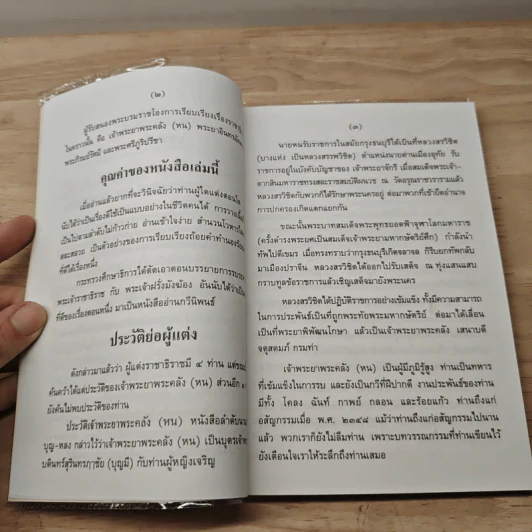 (๒)
ผู้รับสนองพระบรมราชโองการเรียบเรียงเรื่องราชา
ในคราวนั้น คือ เจ้าพระยาพระคลัง (หน) พระยาอินทรอัค
พระภิรมย์รัศมี และพระศรีภูริปรีชา
คุณค่าของหนังสือเล่มนี้
เมื่ออ่านแล้วยากที่จะวินิจฉัยว่าท่านผู้ใดแต่งตอนใด
นับได้ว่าเป็นเรื่องดีได้เป็นแบบอย่างในชีวิตคนได้ การวาง
เป็นไปตามลำดับไม่ก้าวก่าย อ่านเข้าใจง่าย สำนวนโวหาร
สละสลวย เป็นตัวอย่างของการเรียบเรียงถ้อยคำทำนองร้อย
ที่ดีได้เรื่องหนึ่ง
กระทรวงศึกษาธิการได้ตัดเอาตอนบรรยายการรบ
พระเจ้าราชาธิราช กับ พระเจ้าฝรั่งมังฆ้อง อันนับได้ว่าเป็น
ที่ดีของเรื่องตอนหนึ่ง มาเป็นหนังสืออ่านกวีนิพนธ์
ประวัติย่อผู้แต่ง
ดังกล่าวมาแล้วว่า ผู้แต่งราชาธิราชมี ๔ ท่าน แต่
ค้นคว้าได้แต่ประวัติของเจ้าพระยาพระคลัง (หน) ส่วนอีก
ยังค้นไม่พบประวัติของท่าน
ประวัติเจ้าพระยาพระคลัง (หน) หนังสือลำดับ
บุญ-หลง กล่าวไว้ว่าเจ้าพระยาพระคลัง (หน) เป็นบุตรเจ้า
บดินทร์สุรินทรภาชัย (บุญมี) กับท่านผู้หญิงเจริญ
(๓)
นายหนรับราชการในสมัยกรุงธนบุรีได้เป็นที่หลวงสรวิชิต
(บางแห่ง เป็นหลวงสรรพวิชิต) ตำแหน่งนายด่านเมืองอุทัย รับ
ราชการอยู่ในบังคับบัญชาของ เจ้าพระยาจักรี เมื่อสมเด็จพระเจ้า
ตากสินมหาราชทรงสละราชสมบัติผนวช ณ วัดอรุณราชวรารามแล้ว
หลวงสรวิชิตกับพวกก็ได้รักษาพระนครอยู่ ต่อมาพวกที่เข้ายึดอำนาจ
การปกครองเกิดแตกแยกกัน
ขณะนั้นพระบาทสมเด็จพระพุทธยอดฟ้าจุฬาโลกมหาราช
(ครั้งดำรงพระยศเป็นสมเด็จเจ้าพระยามหากษัตริย์ศึก) กำลังนำ
ทัพไปตีเขมร เมื่อทรงทราบว่ากรุงธนบุรีเกิดจลาจล ก็รีบยกทัพกลับ
มาเมืองปราจีน หลวงสรวิชิตได้ออกไปรับเสด็จ ณ ทุ่งแสนแสบ
กราบทูลข้อราชการแล้วเชิญเสด็จมายังพระนคร
หลวงสรวิชิตได้ปฏิบัติราชการอย่างเข้มแข็ง ทั้งมีความสามารถ
ในการประพันธ์เป็นที่ถูกพระทัยพระมหากษัตริย์ ต่อมาได้เลื่อน
เป็นที่พระยาพิพัฒนโกษา แล้วเป็นเจ้าพระยาพระคลัง เสนาบดี
จตุสดมภ์ กรมท่า
เจ้าพระยาพระคลัง (หน) เป็นผู้มีภูมิรู้สูง ท่านเป็นทหาร
ที่เข้มแข็งในการรบ และยังเป็นกวีที่ฝีปากดี งานประพันธ์ของท่าน
มีทั้ง โคลง ฉันท์ กาพย์ กลอน และร้อยแก้ว ท่านถึงแก่
อสัญกรรมเมื่อ พ.ศ. ๒๓๔๘ แม้ว่าท่านถึงแก่อสัญกรรมไปนาน
แล้ว พวกเราก็ยังไม่ลืมท่าน เพราะบทวรรณกรรมที่ท่านเขียนไว้
ยังเตือนใจเราให้ระลึกถึงท่านเสมอ